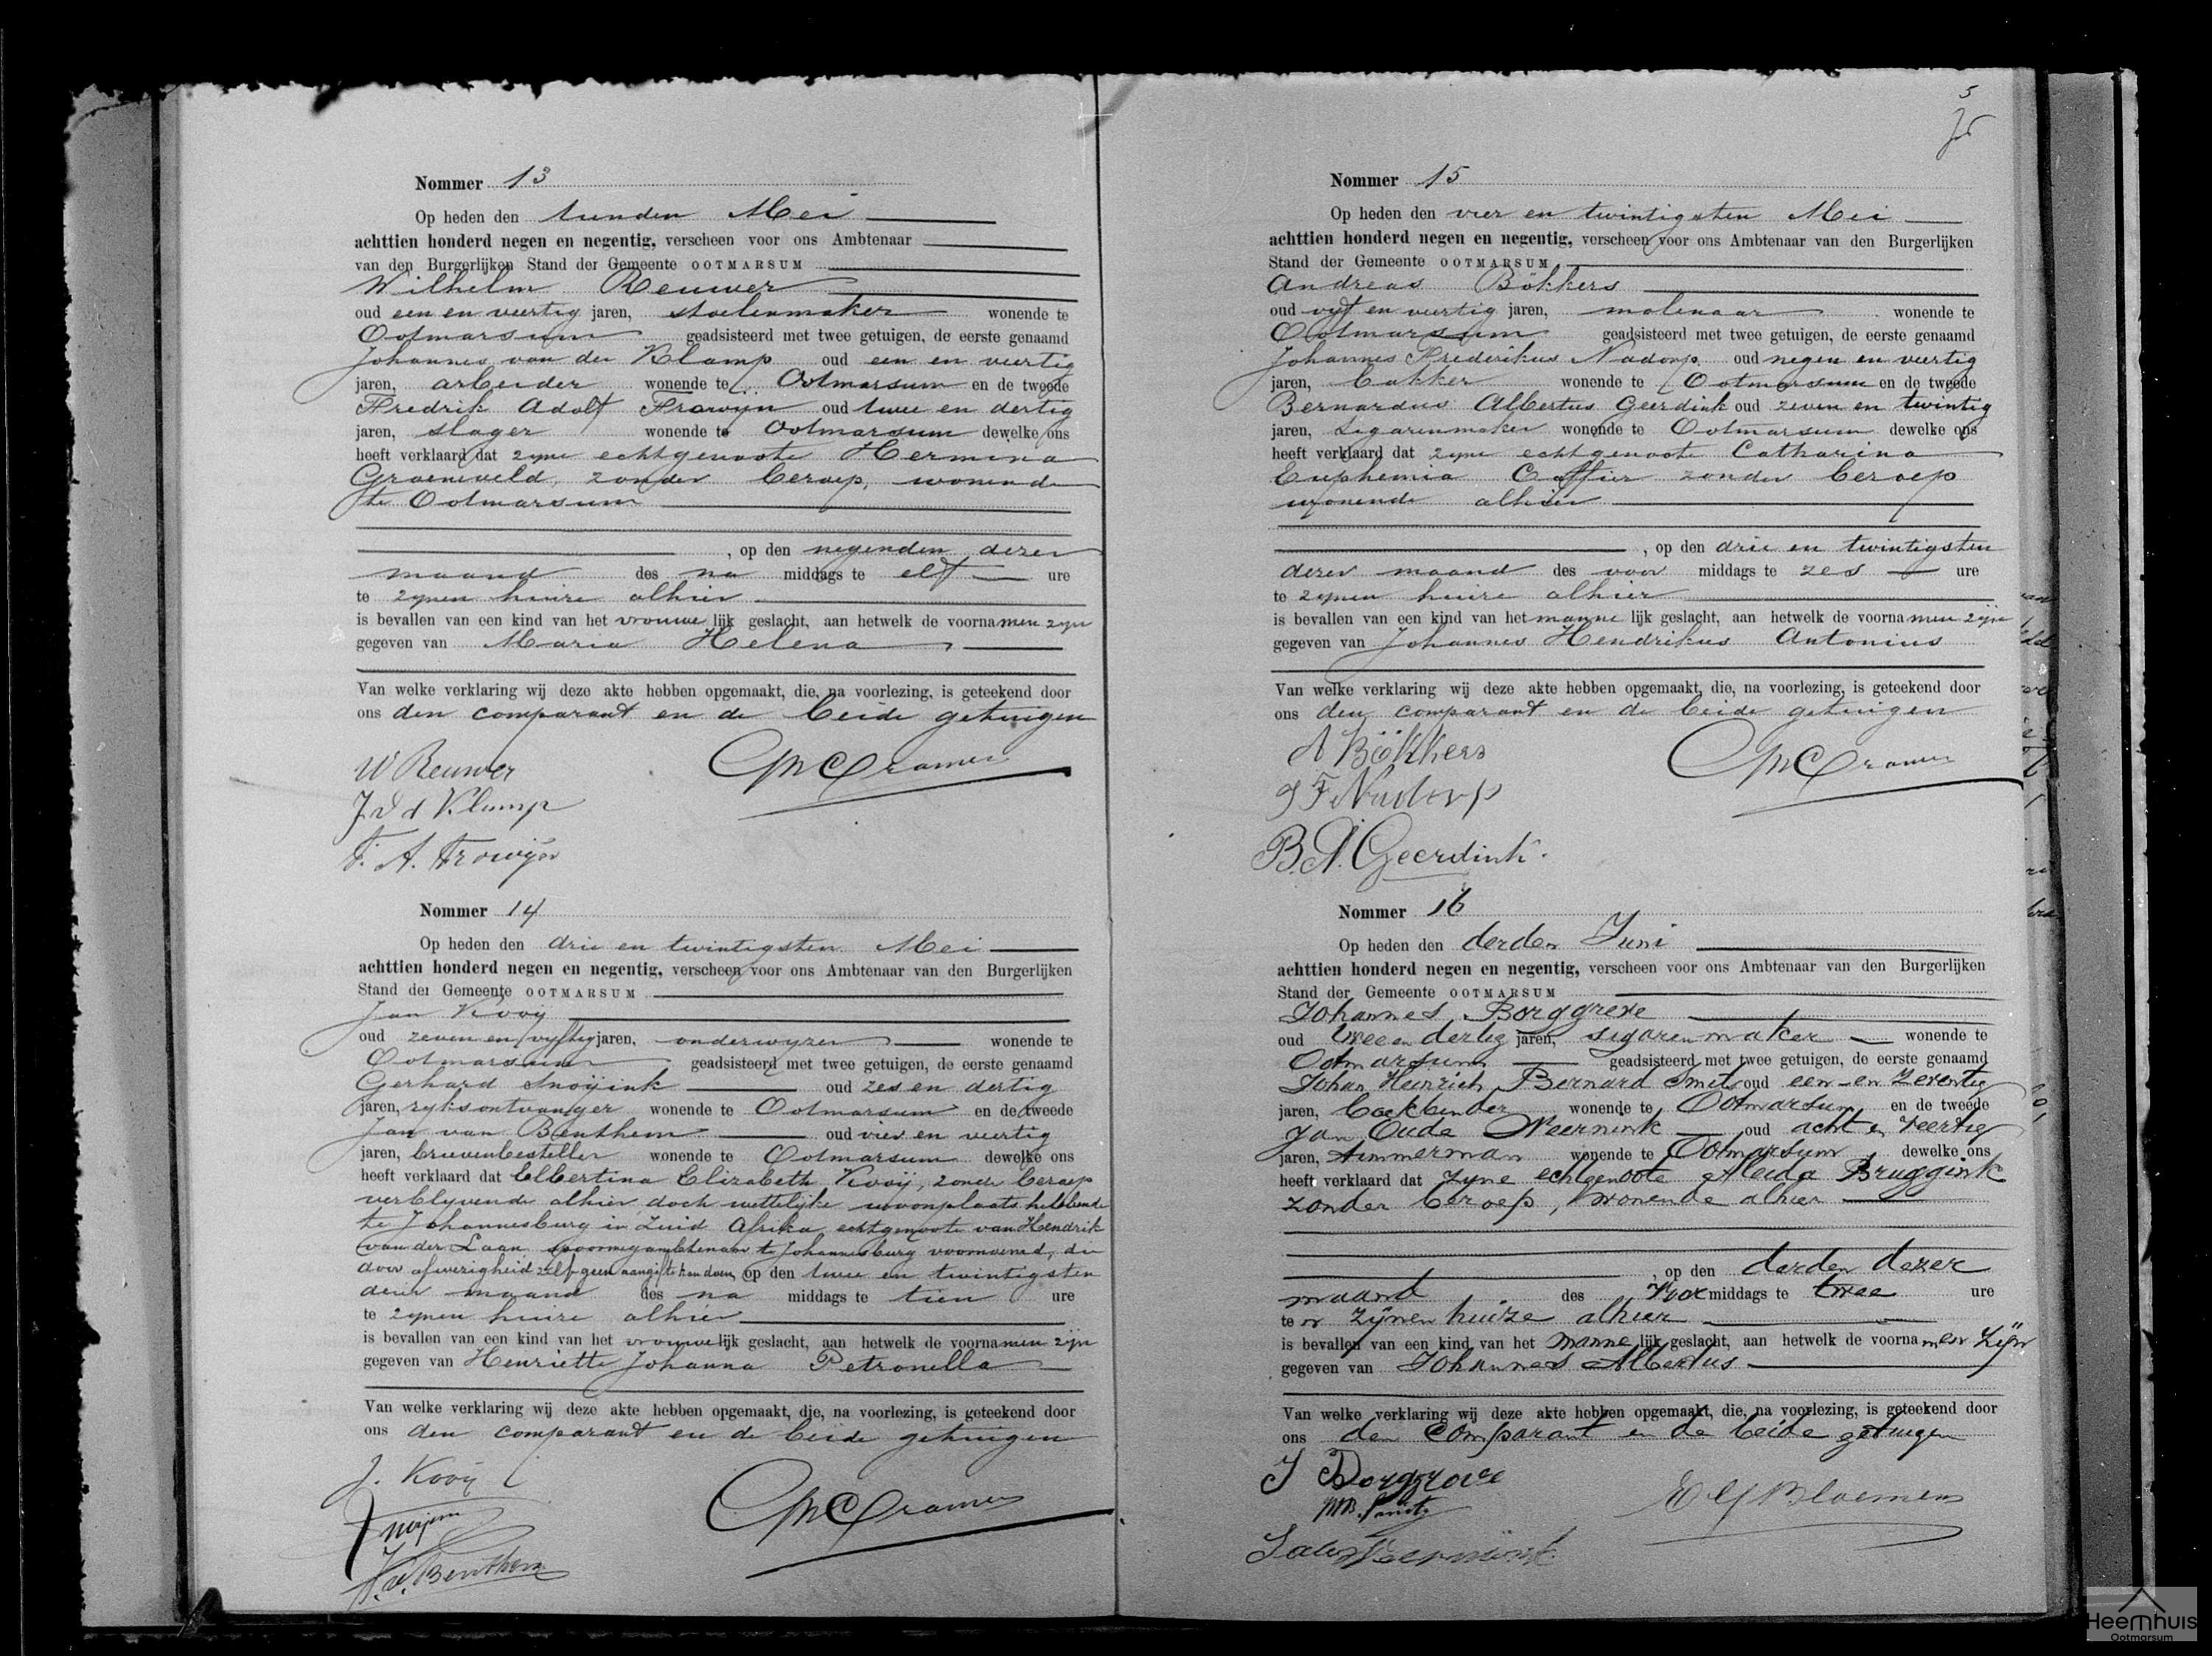 Nommer 13
Op heden den tienden Mei
achttien honderd negen en negentig, verscheen voor ons Ambtenaar
van den Burgerlijken Stand der Gemeente OOTMARSUM
Wilhelm Reuwer
oud een en veertig jaren, stoelenmaker wonende te
Ootmarsum geadsisteerd met twee getuigen, de eerste genaamd
Johannes van der Klamp oud een en veertig
jaren, arbeider wonende te Ootmarsum en de tweede
Fredrik Adolf Frowijn oud twee en dertig
jaren, slager wonende te Ootmarsum dewelke ons
heeft verklaard dat zyne echtgenoote Hermina
Groeneveld, zonder beroep, wonende
te Ootmarsum
, op den negenden dezer
maand des na middags te elf ure
te zynen huize alhier
is bevallen van een kind van het vrouwe lijk geslacht, aan hetwelk de voorna men zyn
gegeven van Maria Helena
Van welke verklaring wij deze akte hebben opgemaakt, die, na voorlezing, is geteekend door
ons den comparant en de beide getuigen
W Reuwer
Cramer
J. v d Klamp
F. A. Frowijn
Nommer 14
Op heden den drie en twintigsten Mei
achttien honderd negen en negentig, verscheen voor ons Ambtenaar van den Burgerlijken
Stand der Gemeente OOTMARSUM
Jan Kooij
oud zeven en vyftig jaren, onderwyzer wonende te
Ootmarsum geadsisteerd met twee getuigen, de eerste genaamd
Gerhard Snoijink oud zes en dertig
jaren, ryksontvanger wonende te Ootmarsum en de tweede
Jan van Benthem oud vier en veertig
jaren, brievenbesteller wonende te Ootmarsum dewelke ons
heeft verklaard dat Elbertina Elizabeth Kooij, zonder beroep
verblyvende alhier doch wettelijke woonplaats hebbende
te Johannesburg in Zuid Afrika, echtgenoote van Hendrik
van der Laan, spoorwegambtenaar te Johannesburg voornoemd, die
door afwezigheid zelf geen aangifte kan doen, op den twee en twintigsten
dezer maand des na middags te tien ure
te zynen huize alhier
is bevallen van een kind van het vrouwe lijk geslacht, aan hetwelk de voorna men zijn
gegeven van Henriette Johanna Petronella
Van welke verklaring wij deze akte hebben opgemaakt, die, na voorlezing, is geteekend door
ons den comparant en de beide getuigen
J. Kooij
Cramer
J. v. Benthem
5
Nommer 15
Op heden den vier en twintigsten Mei
achttien honderd negen en negentig, verscheen voor ons Ambtenaar van den Burgerlijken
Stand der Gemeente OOTMARSUM
Andreas Bökkers
oud vijf en veertig jaren, molenaar wonende te
Ootmarsum geadsisteerd met twee getuigen, de eerste genaamd
Johannes Frederikus Nadorp oud negen en veertig
jaren, bakker wonende te Ootmarsum en de tweede
Bernardus Albertus Geerdink oud zeven en twintig
jaren, sigarenmaker wonende te Ootmarsum dewelke ons
heeft verklaard dat zyne echtgenoote Catharina
Euphemia Caffier zonder beroep
wonende alhier
, op den drie en twintigsten
dezer maand des voor middags te zes ure
te zynen huize alhier
is bevallen van een kind van het manne lijk geslacht, aan hetwelk de voorna men zijn
gegeven van Johannes Hendrikus Antonius
Van welke verklaring wij deze akte hebben opgemaakt, die, na voorlezing, is geteekend door
ons den comparant en de beide getuigen
A Bökkers
Cramer
J F Nadorp
B. A. Geerdink.
Nommer 16
Op heden den derden Juni
achttien honderd negen en negentig, verscheen voor ons Ambtenaar van den Burgerlijken
Stand der Gemeente OOTMARSUM
Johannes Borggreve
oud twee en dertig jaren, sigarenmaker wonende te
Ootmarsum geadsisteerd met twee getuigen, de eerste genaamd
Johan Heinrich Bernard Smit oud een en zeventig
jaren, boekbinder wonende te Ootmarsum en de tweede
Jan Oude Weernink oud acht en veertig
jaren, timmerman wonende te Ootmarsum dewelke ons
heeft verklaard dat zyne echtgenoote Aleida Bruggink
zonder beroep, wonende alhier
, op den derden dezer
maand des voor middags te twee ure
te zijnen huize alhier
is bevallen van een kind van het manne lijk geslacht, aan hetwelk de voorna men zijn
gegeven van Johannes Albertus
Van welke verklaring wij deze akte hebben opgemaakt, die, na voorlezing, is geteekend door
ons den comparant en de beide getuigen
J Borggreve
Bloemen
Heemhuis
Ootmarsum